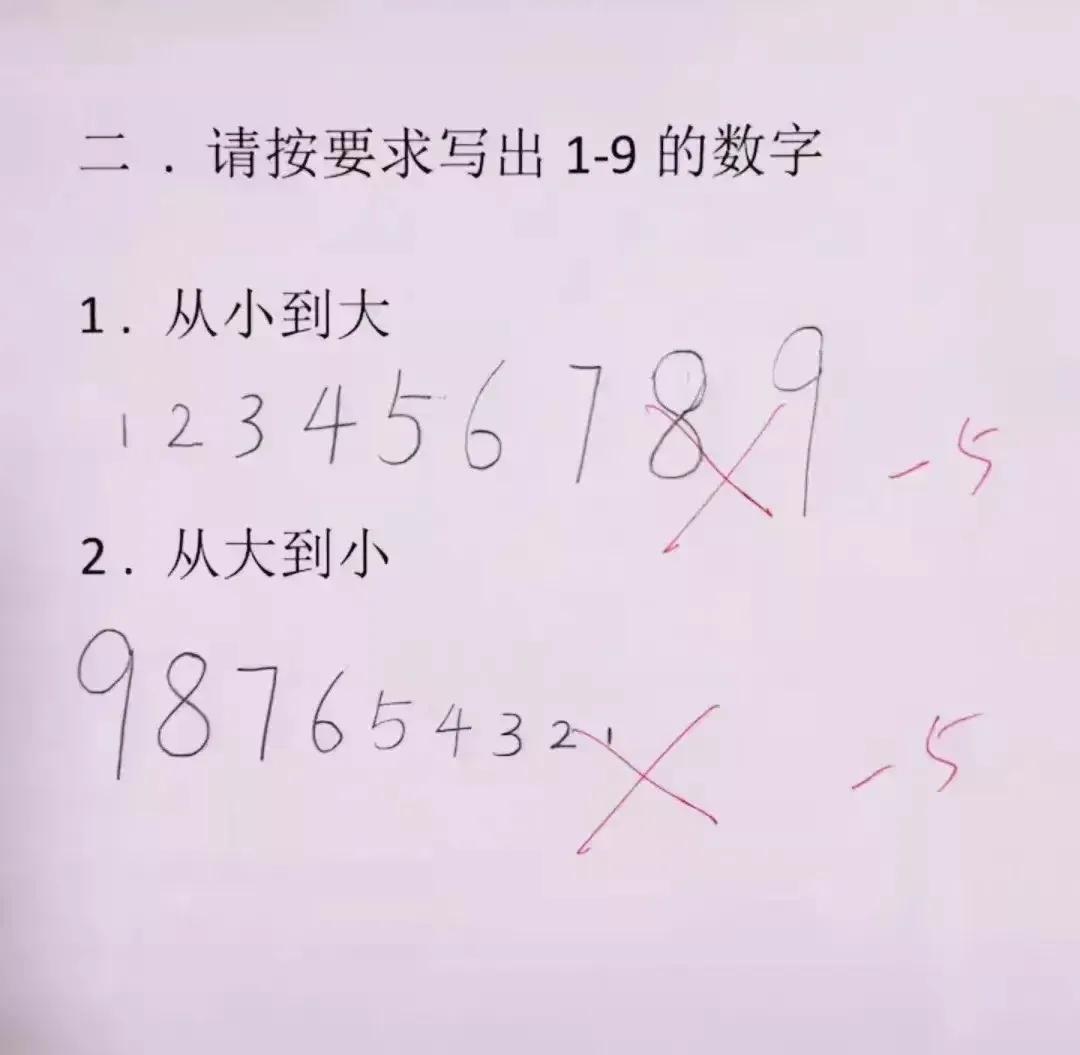 二．请按要求写出 1-9 的数字
1．从小到大
1 2 3 4 5 6 7 8 9 -5
2．从大到小
9 8 7 6 5 4 3 2 1 -5